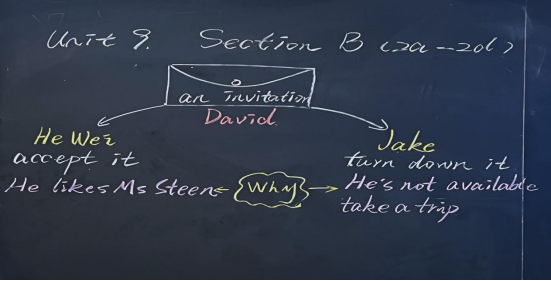 Unit 9. Section B (2a-2d)
an invitation
David
He Wei
accept it
He likes Ms Steen
Why
Jake
turn down it
He's not available
take a trip